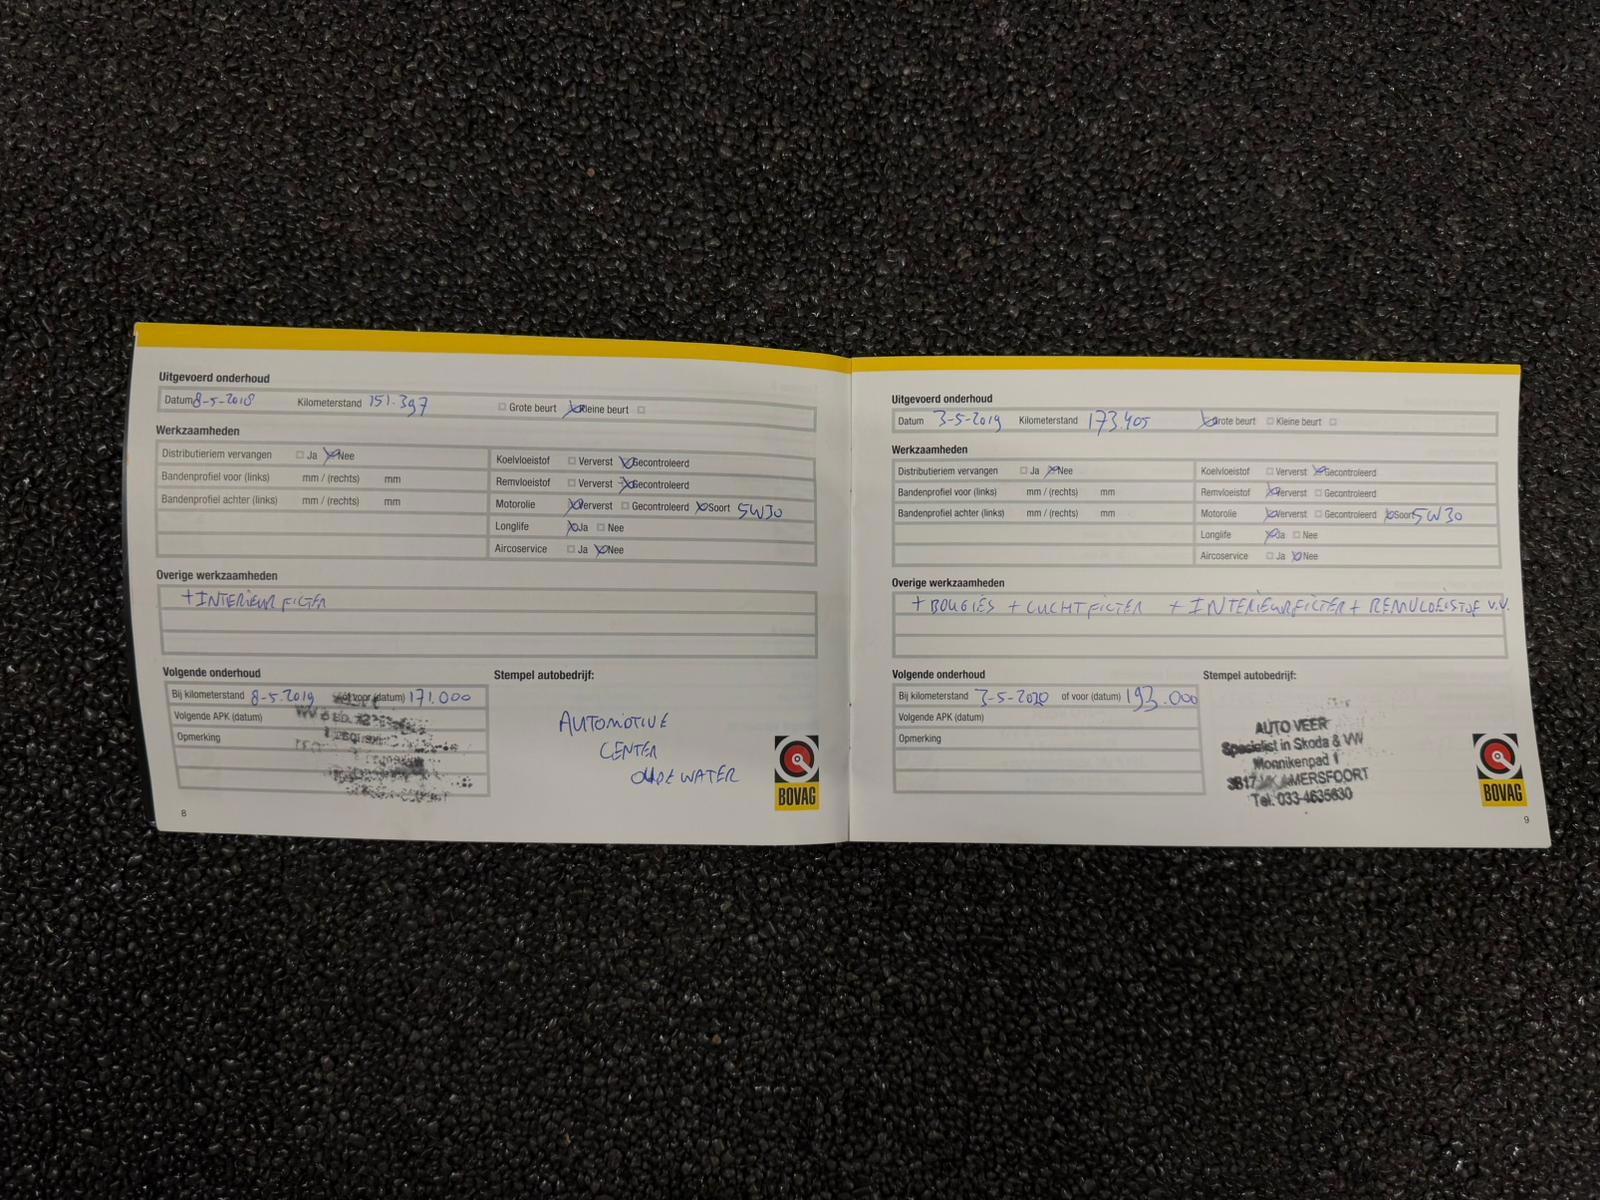 Uitgevoerd onderhoud
Datum 8-5-2018 Kilometerstand 151.397 Grote beurt Kleine beurt
Werkzaamheden
Distributieriem vervangen Ja Nee
Bandenprofiel voor (links) mm / (rechts) mm
Bandenprofiel achter (links) mm / (rechts) mm
Koelvloeistof Ververst Gecontroleerd
Remvloeistof Ververst Gecontroleerd
Motorolie Ververst Gecontroleerd Soort 5W30
Longlife Ja Nee
Aircoservice Ja Nee
Overige werkzaamheden
+ INTERIEUR FILTER
Volgende onderhoud
Bij kilometerstand 8-5-2019 of voor (datum) 171.000
Volgende APK (datum)
Opmerking
Stempel autobedrijf:
AUTOMOTIVE
CENTER
OUDEWATER
BOVAG
8
Uitgevoerd onderhoud
Datum 3-5-2019 Kilometerstand 173.405 Grote beurt Kleine beurt
Werkzaamheden
Distributieriem vervangen Ja Nee
Bandenprofiel voor (links) mm / (rechts) mm
Bandenprofiel achter (links) mm / (rechts) mm
Koelvloeistof Ververst Gecontroleerd
Remvloeistof Ververst Gecontroleerd
Motorolie Ververst Gecontroleerd Soort 5W30
Longlife Ja Nee
Aircoservice Ja Nee
Overige werkzaamheden
+ BOUGIES + LUCHTFILTER + INTERIEURFILTER + REMVLOEISTOF V.V.
Volgende onderhoud
Bij kilometerstand 3-5-2020 of voor (datum) 193.000
Volgende APK (datum)
Opmerking
Stempel autobedrijf:
AUTO VEER
Specialist in Skoda & VW
Monnikenpad 1
AMERSFOORT
Tel. 033-4635630
BOVAG
9